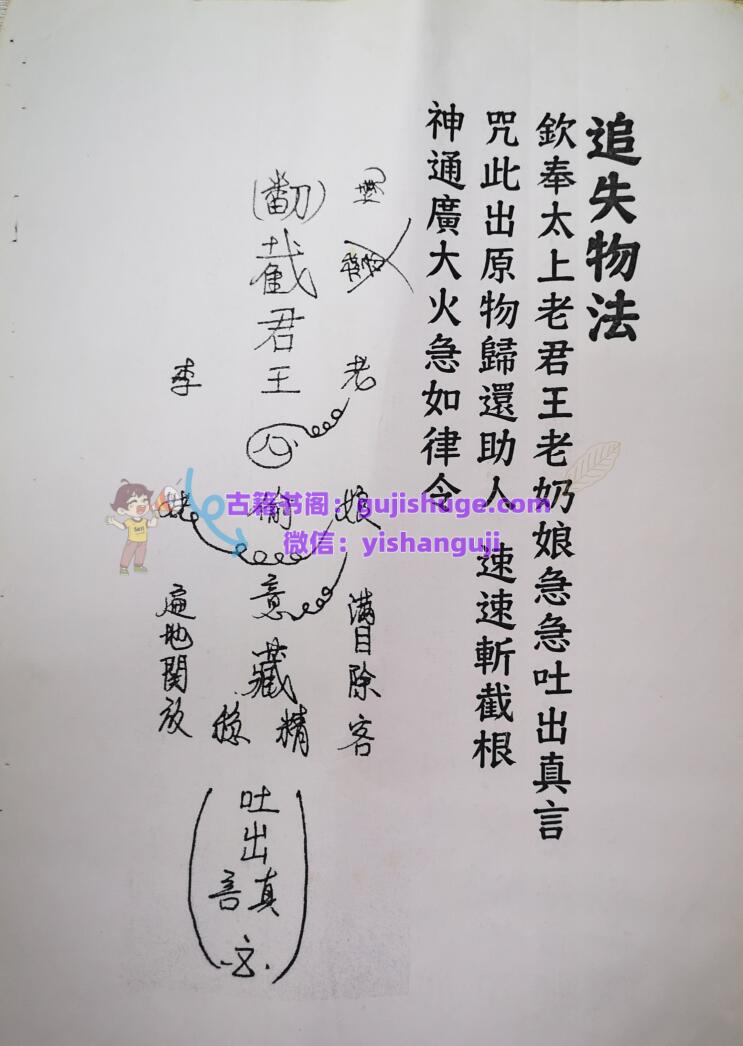 追失物法
欽奉太上老君王老奶娘急急吐出真言
咒此出原物歸還助人 速速斬截根
神通廣大火急如律令
老
娘
滿目除客
君王
偷
意藏
精
稳
李
姥
遍地開放
吐出
真
言
古籍书阁：gujishuge.com
微信：yishanguji